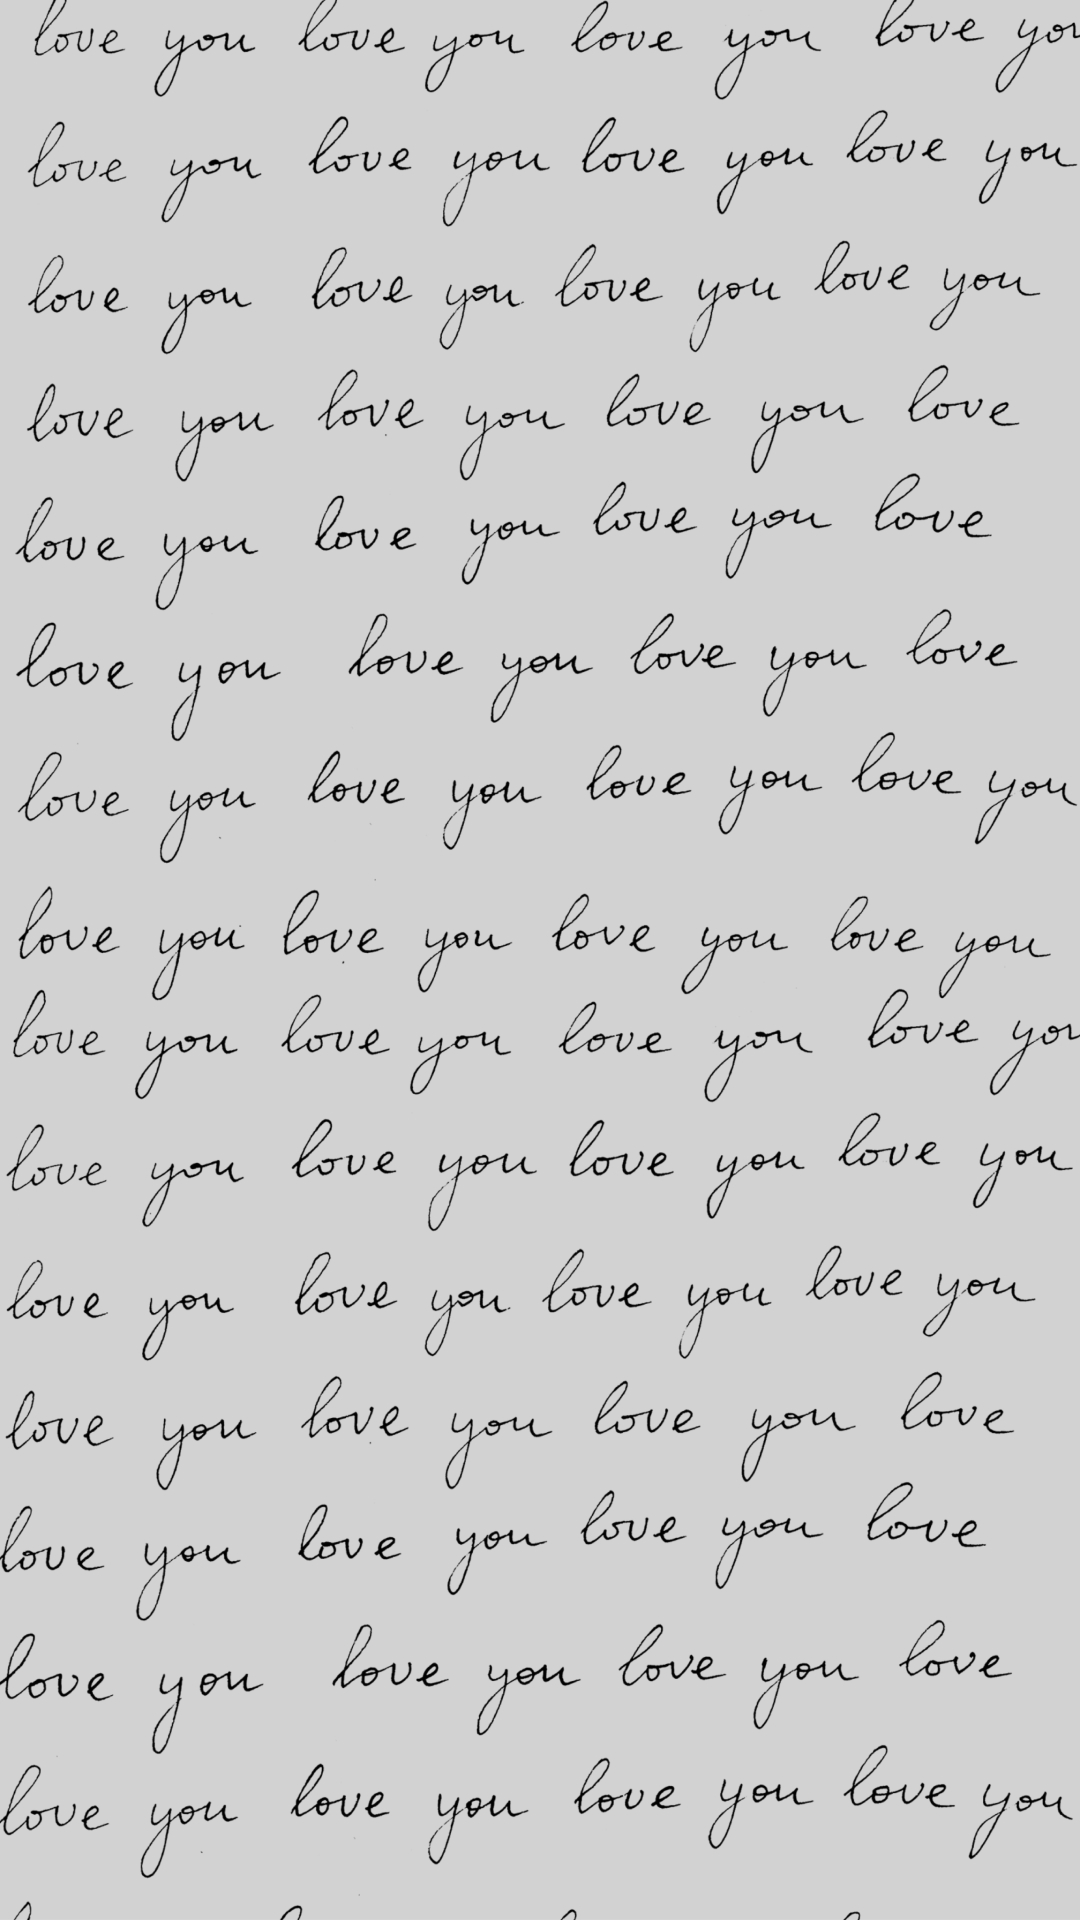 love you love you love you love you
love you love you love you love you
love you love you love you love you
love you love you love you love
love you love you love you love
love you love you love you love
love you love you love you love you
love you love you love you love you
love you love you love you love you
love you love you love you love you
love you love you love you love you
love you love you love you love
love you love you love you love
love you love you love you love
love you love you love you love you